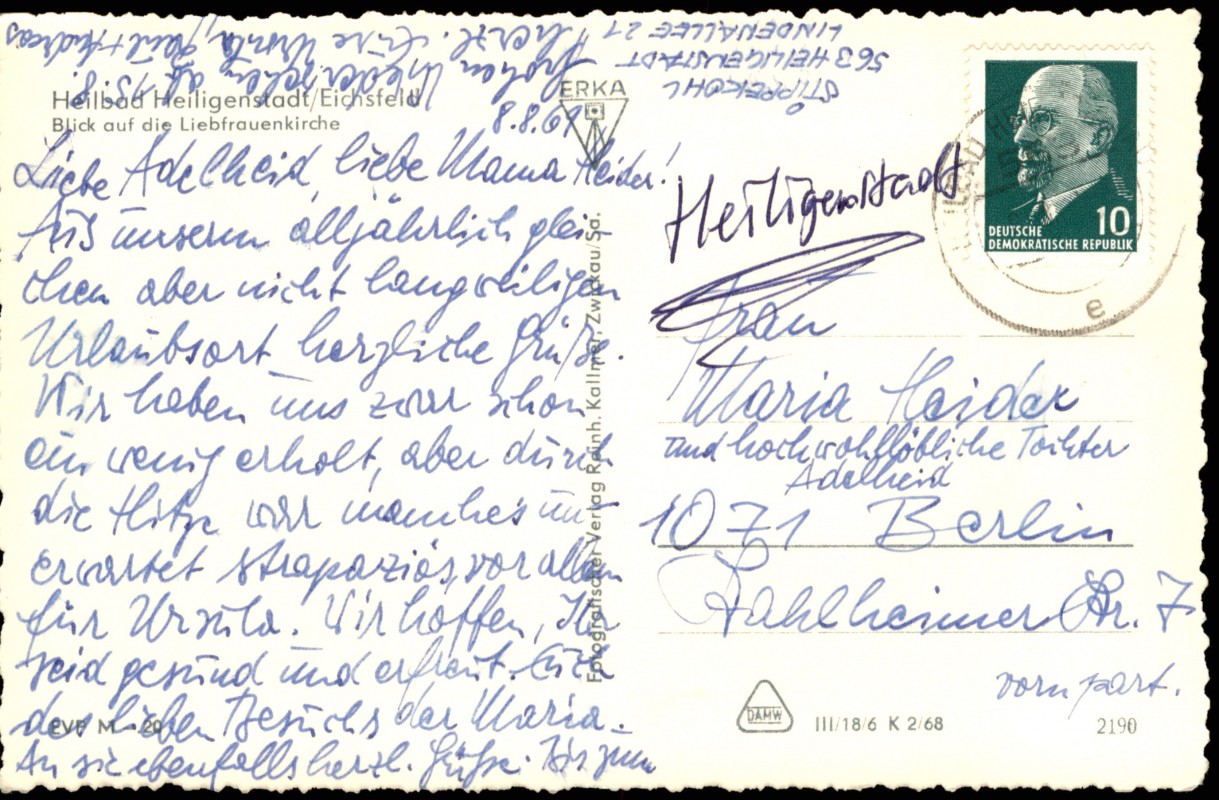 Heilbad Heiligenstadt/Eichsfeld
Blick auf die Liebfrauenkirche
ERKA
8.8.69
Liebe Adelheid, liebe Mama Heider!
Aus unserm alljährlich glei-
chen aber nicht langweiligen
Urlaubsort herzliche Grüße.
Wir haben uns zwar schon
ein wenig erholt, aber durch
die Hitze war manches un-
erwartet strapaziös, vor allem
für Ursula. Wir hoffen, Ihr
seid gesund und erfreut Euch
des lieben Besuchs der Maria.
An sie ebenfalls herzl. Grüße. Bis zum
frohen Wiedersehen ab 15.8.
herzl. Eure Ursula, Paul + Andreas
STIPPEKOHL
563 HEILIGENSTADT
LINDENALLEE 21
EVP M -.20
Fotografischer Verlag Reinh. Kallmer, Zwickau/Sa.
Heiligenstadt
10
DEUTSCHE
DEMOKRATISCHE REPUBLIK
e
Frau
Maria Heider
und hochwohllöbliche Tochter
Adelheid
1071 Berlin
Str. 7
vorn part.
DAMW
III/18/6 K 2/68
2190